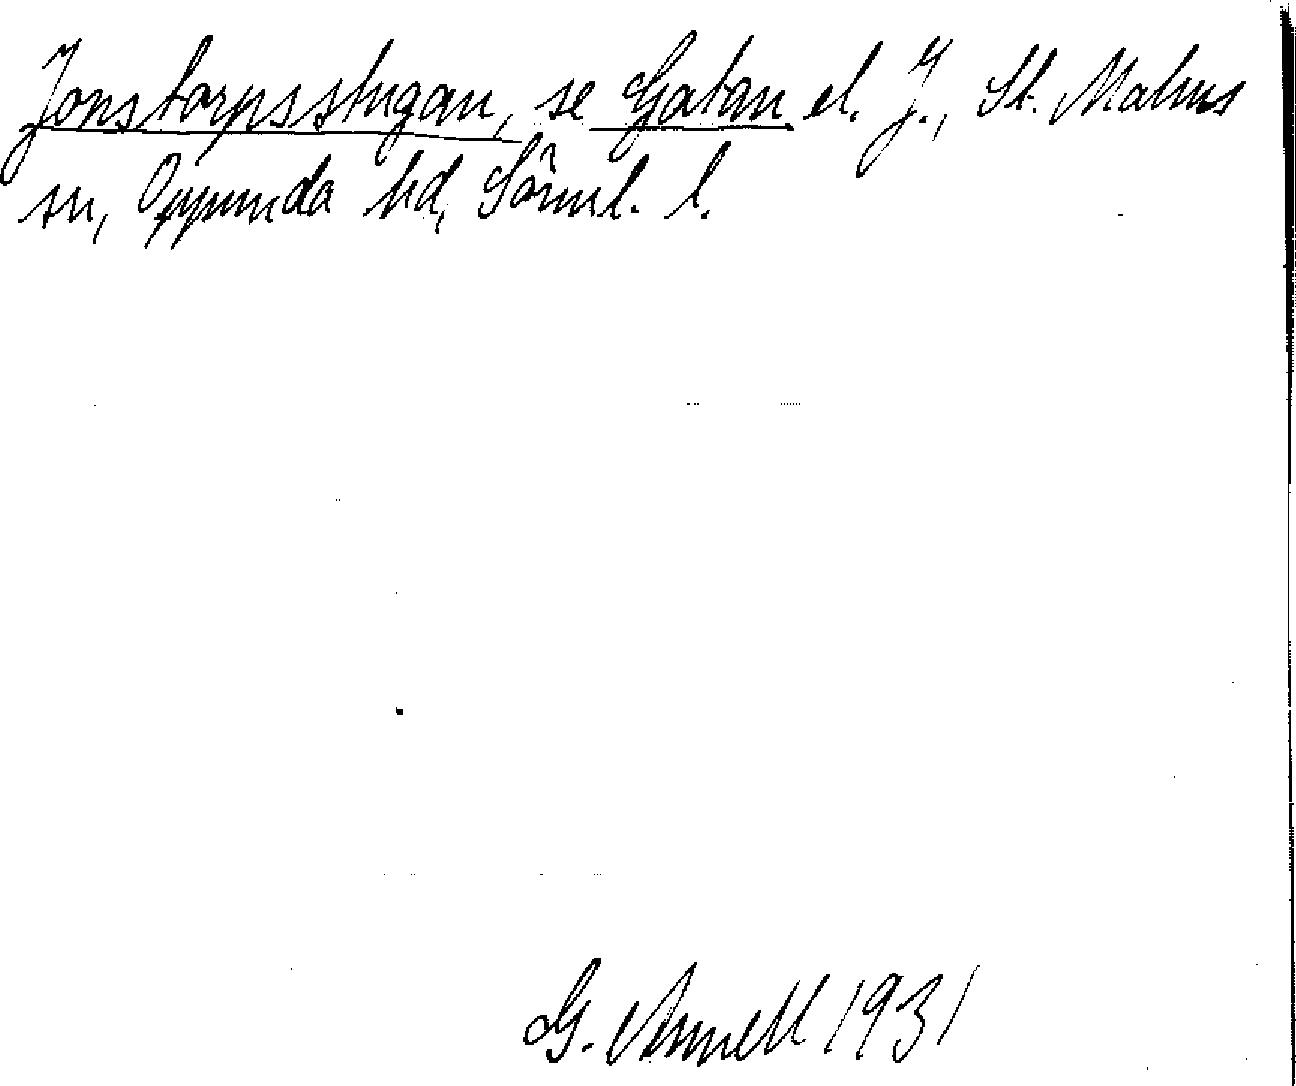 Jonstorpsstugan, se Gatan el. J., St. Malms
sn, Oppunda hd, Sörml. l.
G. Annell 1931